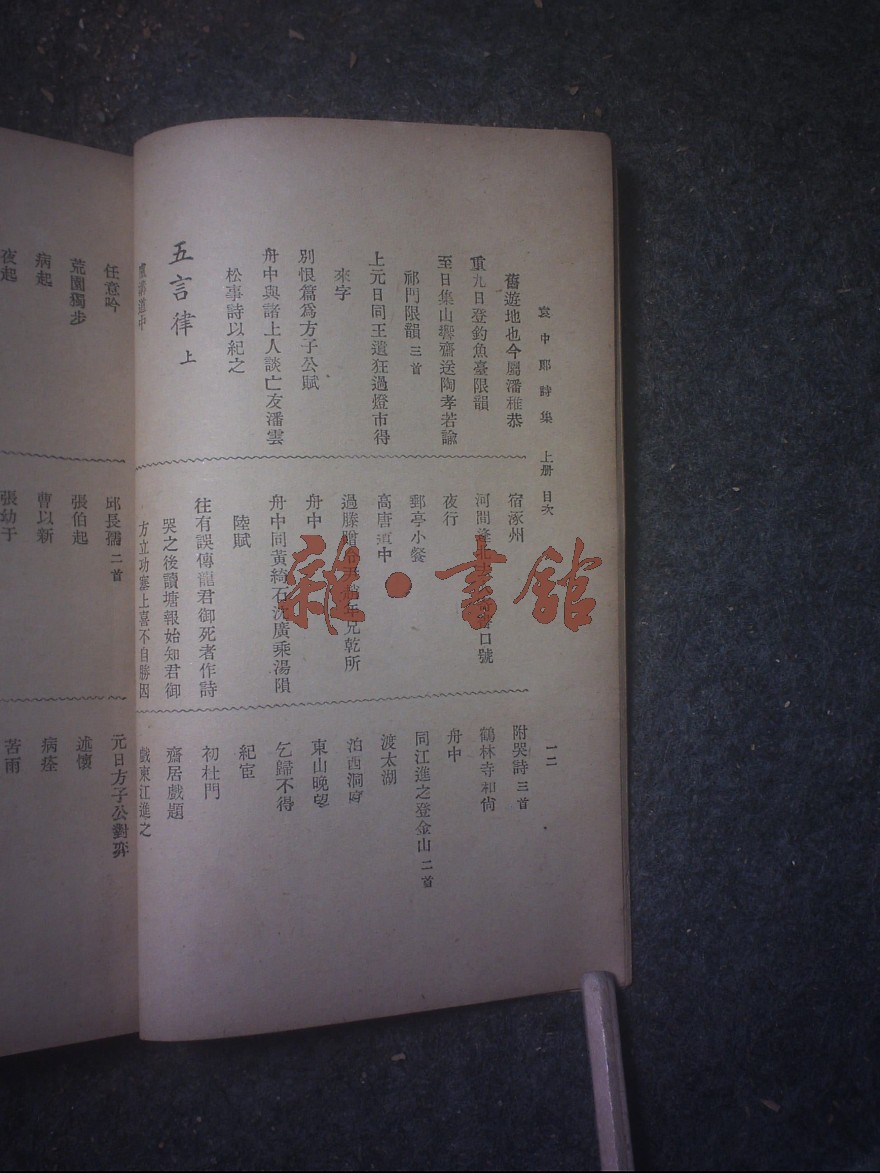 袁中郎詩集 上册 目次
一二
舊遊地也今屬潘稚恭
重九日登釣魚臺限韻
至日集山響齋送陶孝若諭
祁門限韻 三首
上元日同王遺狂過燈市得
來字
別恨篇爲方子公賦
舟中與諸上人談亡友潘雲
松事詩以紀之
五言律 上
道中
宿涿州
河間逢北 口號
夜行
郵亭小餐
高唐道中
過滕贈 兄乾所
舟中
舟中同黃綺石沈廣乘湯隕
陸賦
往有誤傳龍君御死者作詩
哭之後讀塘報始知君御
方立功塞上喜不自勝因
附哭詩 三首
鶴林寺和尙
舟中
同江進之登金山 二首
渡太湖
泊西洞庭
東山晚望
乞歸不得
紀宦
初杜門
齋居戲題
戲東江進之
任意吟
荒園獨步
病起
夜起
邱長孺 二首
張伯起
曹以新
張幼于
元日方子公對弈
述懷
病痊
苦雨
雜·書舘